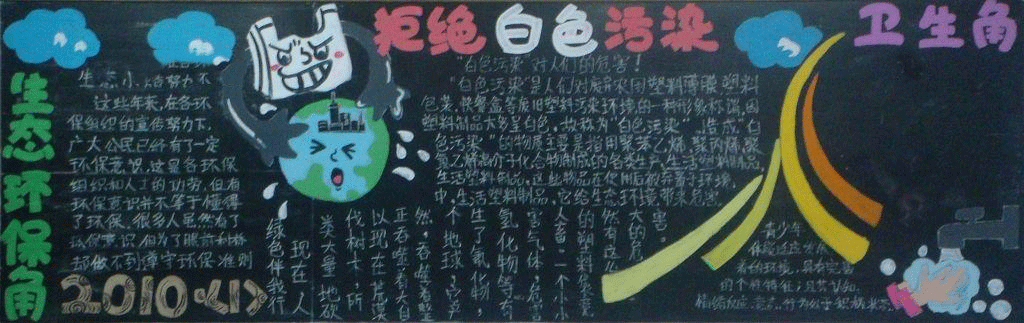 生态环保角
生态小
努力不
这些年来,在各环
保组织的宣传努力下,
广大公民已经有了一定
环保意识,这是各环保
组织和人士的功劳,但有
环保意识并不等于懂得
了环保,很多人虽然有了
环保意识,但为了眼前利益
却做不到遵守环保准则
2010·<1>
拒绝白色污染
"白色污染"对人们的危害!
"白色污染"是人们对废弃农用塑料薄膜、塑料
包装、快餐盒等废旧塑料污染环境的一种形象称谓,因
塑料制品大多呈白色,故称为"白色污染"。造成"白
色污染"的物质主要是指用聚苯乙烯、聚丙烯、聚
氯乙烯高分子化合物制成的各类生产、生活塑料制品
生活塑料制品,这些物品在使用后被弃置于环境
中,生活塑料制品,它给生态环境带来危害
绿色伴我行
现在人
类大量地砍
伐树木,所
以现在荒漠
正吞噬着大自
然,吞噬着整
个地球,它产
生了氧化物,
氢化物等有
害气体,危害
人畜,一个小小
的塑料袋竟
然有这
大的危
害。
卫生角
青少年
的环境,具有完善
的个性特征,且其认知、
情绪反应、意志、行为处于积极状态